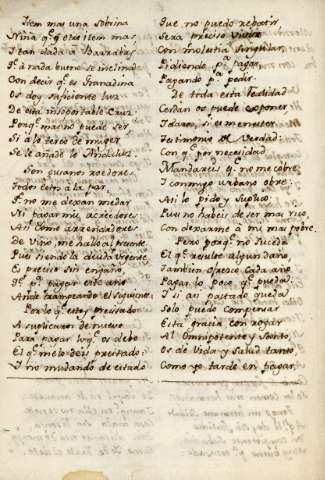 Item mas una Sobrina
Niña q.e es item mas
I tan dada a Barrabas
q.e à nada bueno se inclina
Con decir q.e es Granadina
Os doy suficiente luz
De esta insoportable Cruz
Porq.e mas no puede ser
Si à lo terco de muger
Se le añade lo Andaluz.
Son quatro acredores
Todos estos à la par
q.e no me dexan medrar
Ni pagar mis acreedores
Asi como arrendadores
De vino, me hallo al presente
Pues siendo la deuda urgente
Es preciso sin engaño
q.e p.a pagar este año
Ande trampeando el siguiente.
Por lo q.e estoy precisado
A suplicaros de nuevo
Para pagar lo q.e os debo
El q.e me lo deis prestado:
I no mudando de estado
Que no puedo repetir,
Sera preciso vivir
Con molestia singular,
Pidiendo p.a pagar,
Pagando p.a pedir.
De toda esta realidad
Cerdan os puede exponer
I daros, si es menester
Testimonio de Verdad:
Con q.e por necesidad
Mandareis q.e no me cobre,
I conmigo urbano obre:
Asi lo pido y suplico
Pues no habeis de ser mas rico
Con dexarme à mi mas pobre.
Pero porq.e no suceda
El q.e resulte algun daño,
Tambien ofrezco cada año
Pagar lo poco q.e pueda:
I si au pactado queda
Solo puedo compensar
Esta gracia con rogar
Al Omnipotente y Santo,
Os de Vida y salud tanto,
Como yo tarde en pagar.